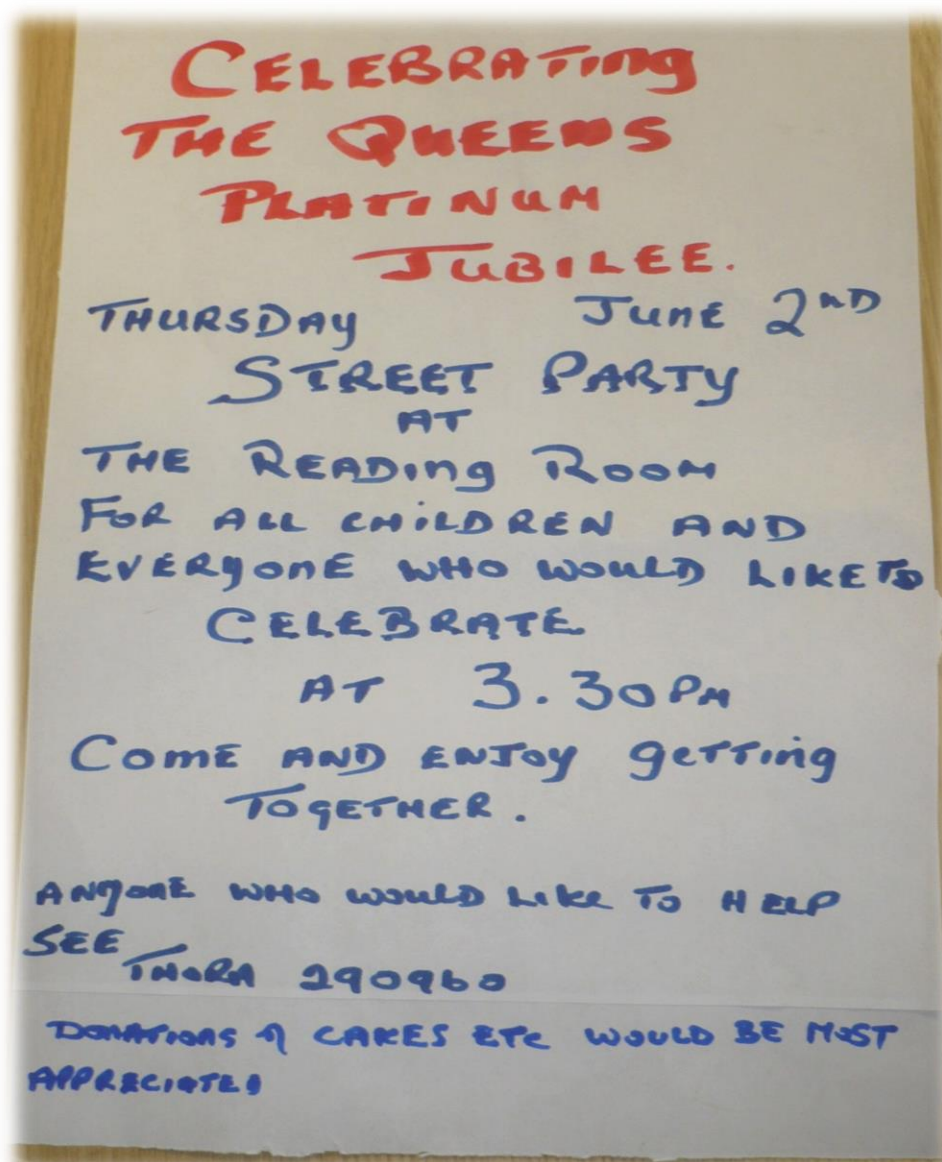 CELEBRATING
THE QUEENS
PLATINUM
JUBILEE.
THURSDAY JUNE 2ND
STREET PARTY
AT
THE READING ROOM
FOR ALL CHILDREN AND
EVERYONE WHO WOULD LIKE TO
CELEBRATE
AT 3.30PM
COME AND ENJOY GETTING
TOGETHER.
ANYONE WHO WOULD LIKE TO HELP
SEE
THORA 290960
DONATIONS OF CAKES ETC WOULD BE MOST
APPRECIATED